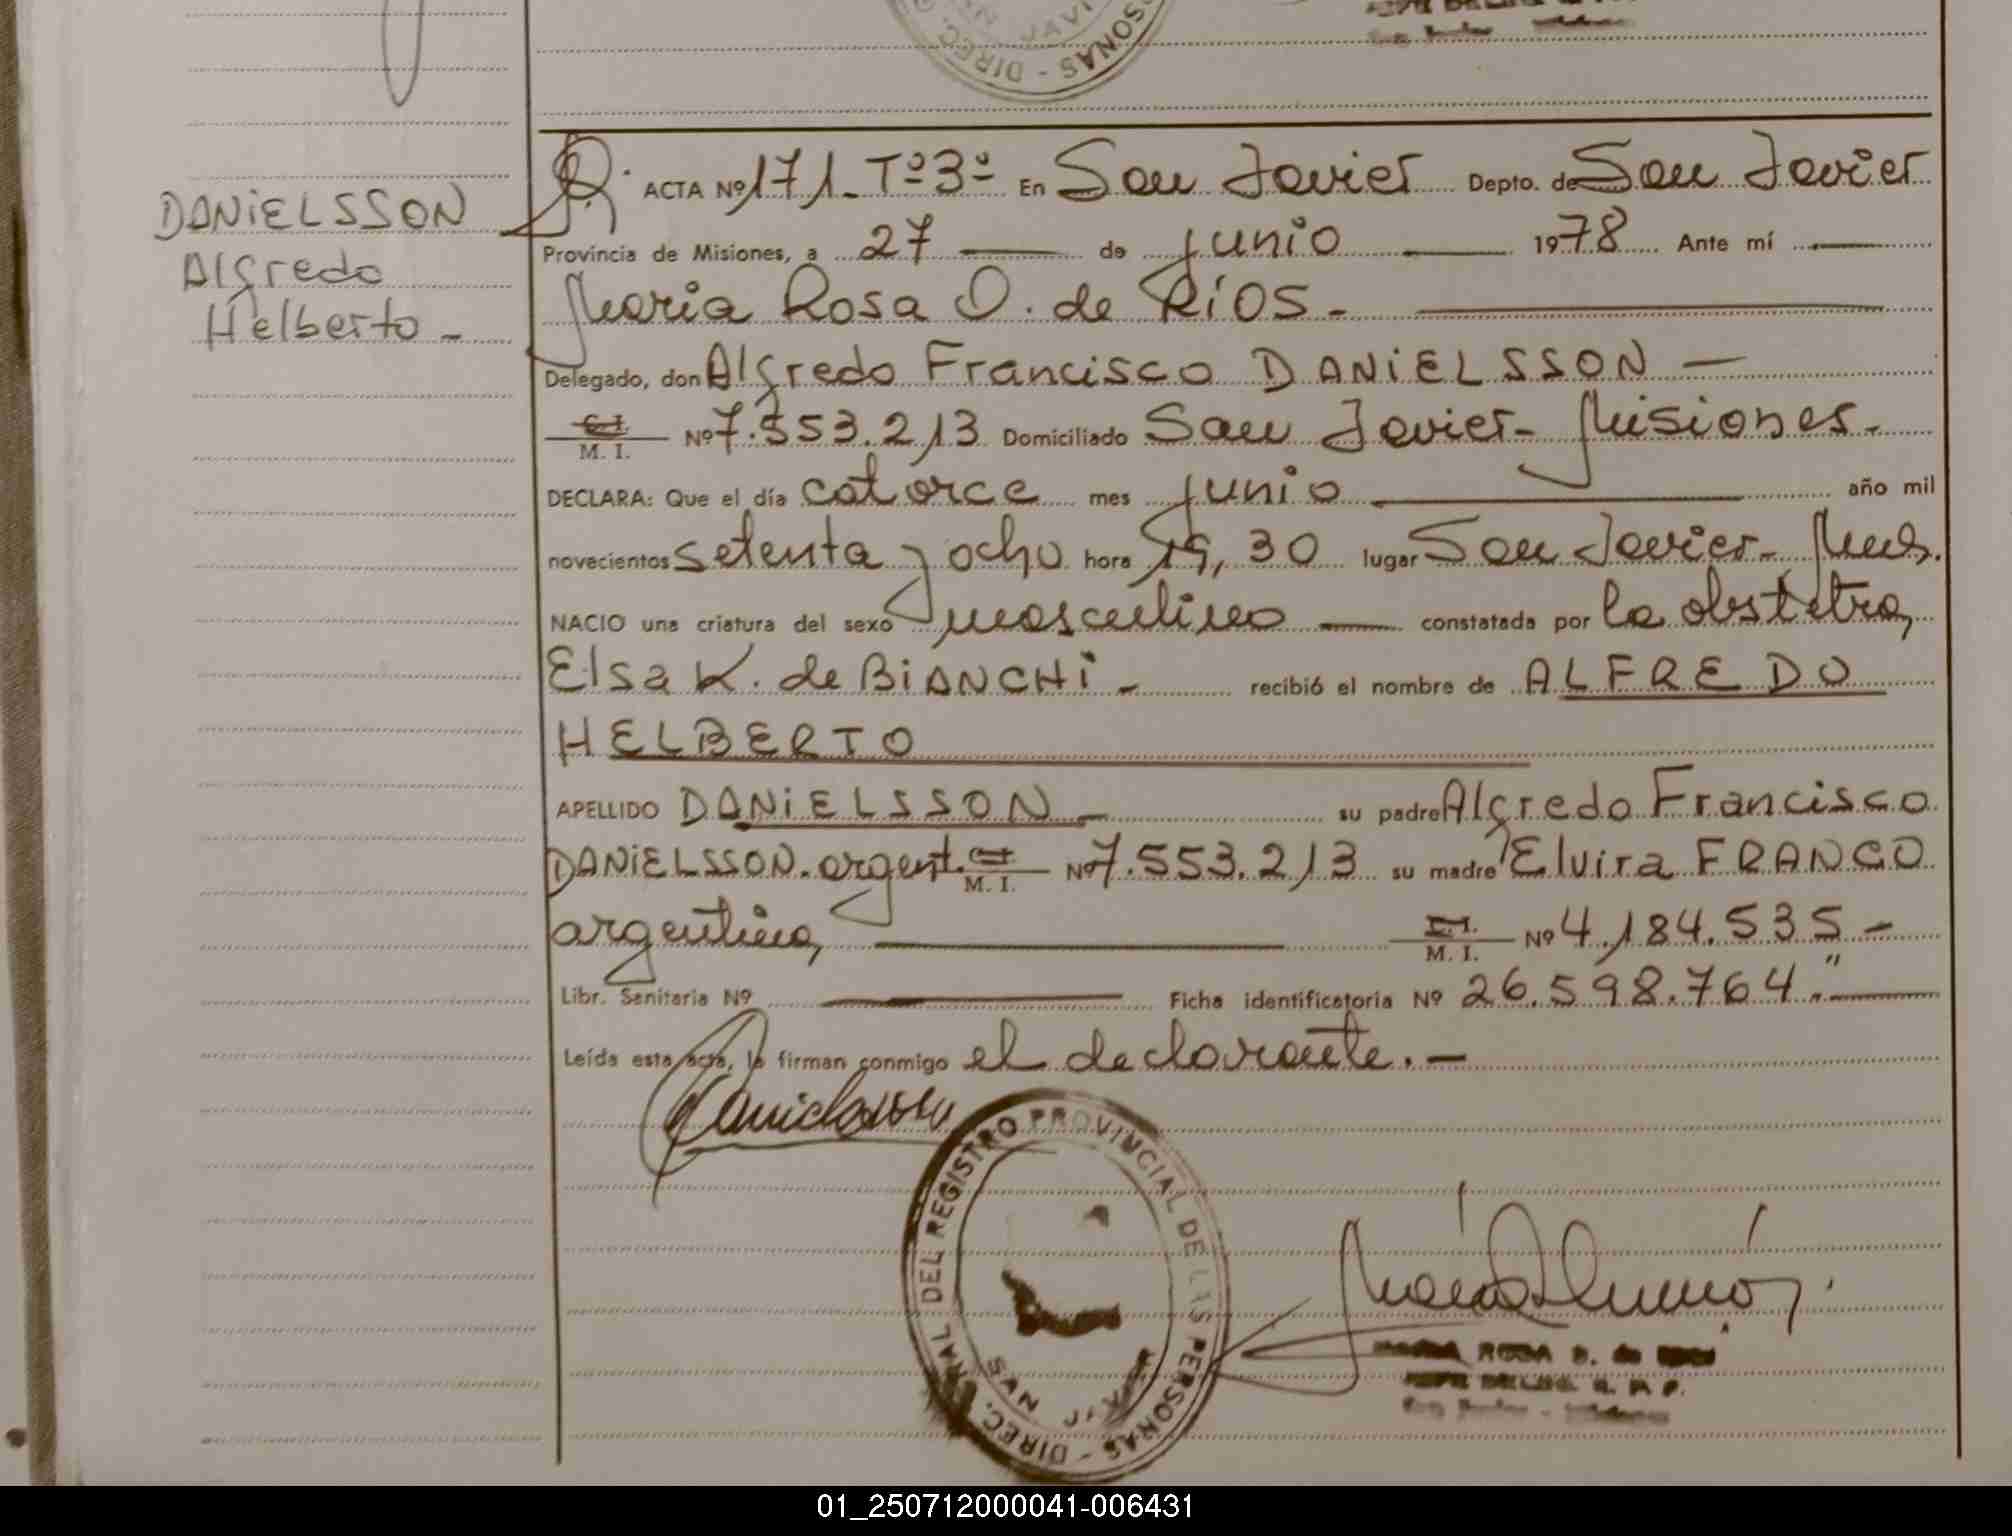 DIREC. PERSONAS - JAVI
DANIELSSON
Alfredo
Helberto -
ACTA Nº 171 - Tº 3º En San Javier Depto. de San Javier
Provincia de Misiones, a 27 de junio 1978 Ante mí
Maria Rosa O. de RÍOS -
Delegado, don Alfredo Francisco DANIELSSON -
C. I. / M. I. Nº 7.553.213 Domiciliado San Javier - Misiones -
DECLARA: Que el día catorce mes junio año mil
novecientos setenta y ocho hora 19,30 lugar San Javier - Mnes.
NACIO una criatura del sexo masculino constatada por la obstetra,
Elsa K. de BIANCHI - recibió el nombre de ALFREDO
HELBERTO
APELLIDO DANIELSSON - su padre Alfredo Francisco
DANIELSSON. argent. C. I. / M. I. Nº 7.553.213 su madre Elvira FRANCO
argentina, C. I. / M. I. Nº 4.184.535 -
Libr. Sanitaria Nº Ficha identificatoria Nº 26.598.764."
Leída esta acta, la firman conmigo el declarante. -
Danielsson
DIREC. GRAL DEL REGISTRO PROVINCIAL DE LAS PERSONAS - SAN JAVIER
MARIA ROSA O. de RIOS
JEFE DELEG. R. P. P.
San Javier - Misiones
01_250712000041-006431